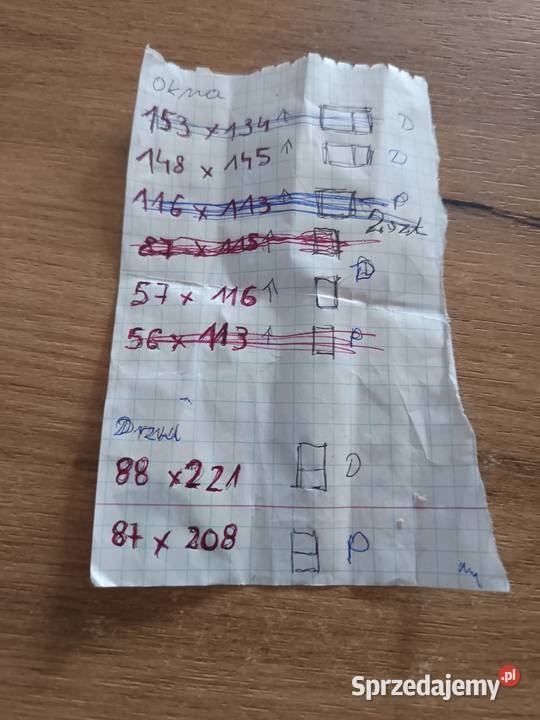 Okna
153 x 134 ↑ D
148 x 145 ↑ D
116 x 113 ↑ P
2szt
87 x 115 ↑
D
57 x 116 ↑
56 x 113 ↑ P
Drzwi
88 x 221 D
87 x 208 P
Sprzedajemy.pl